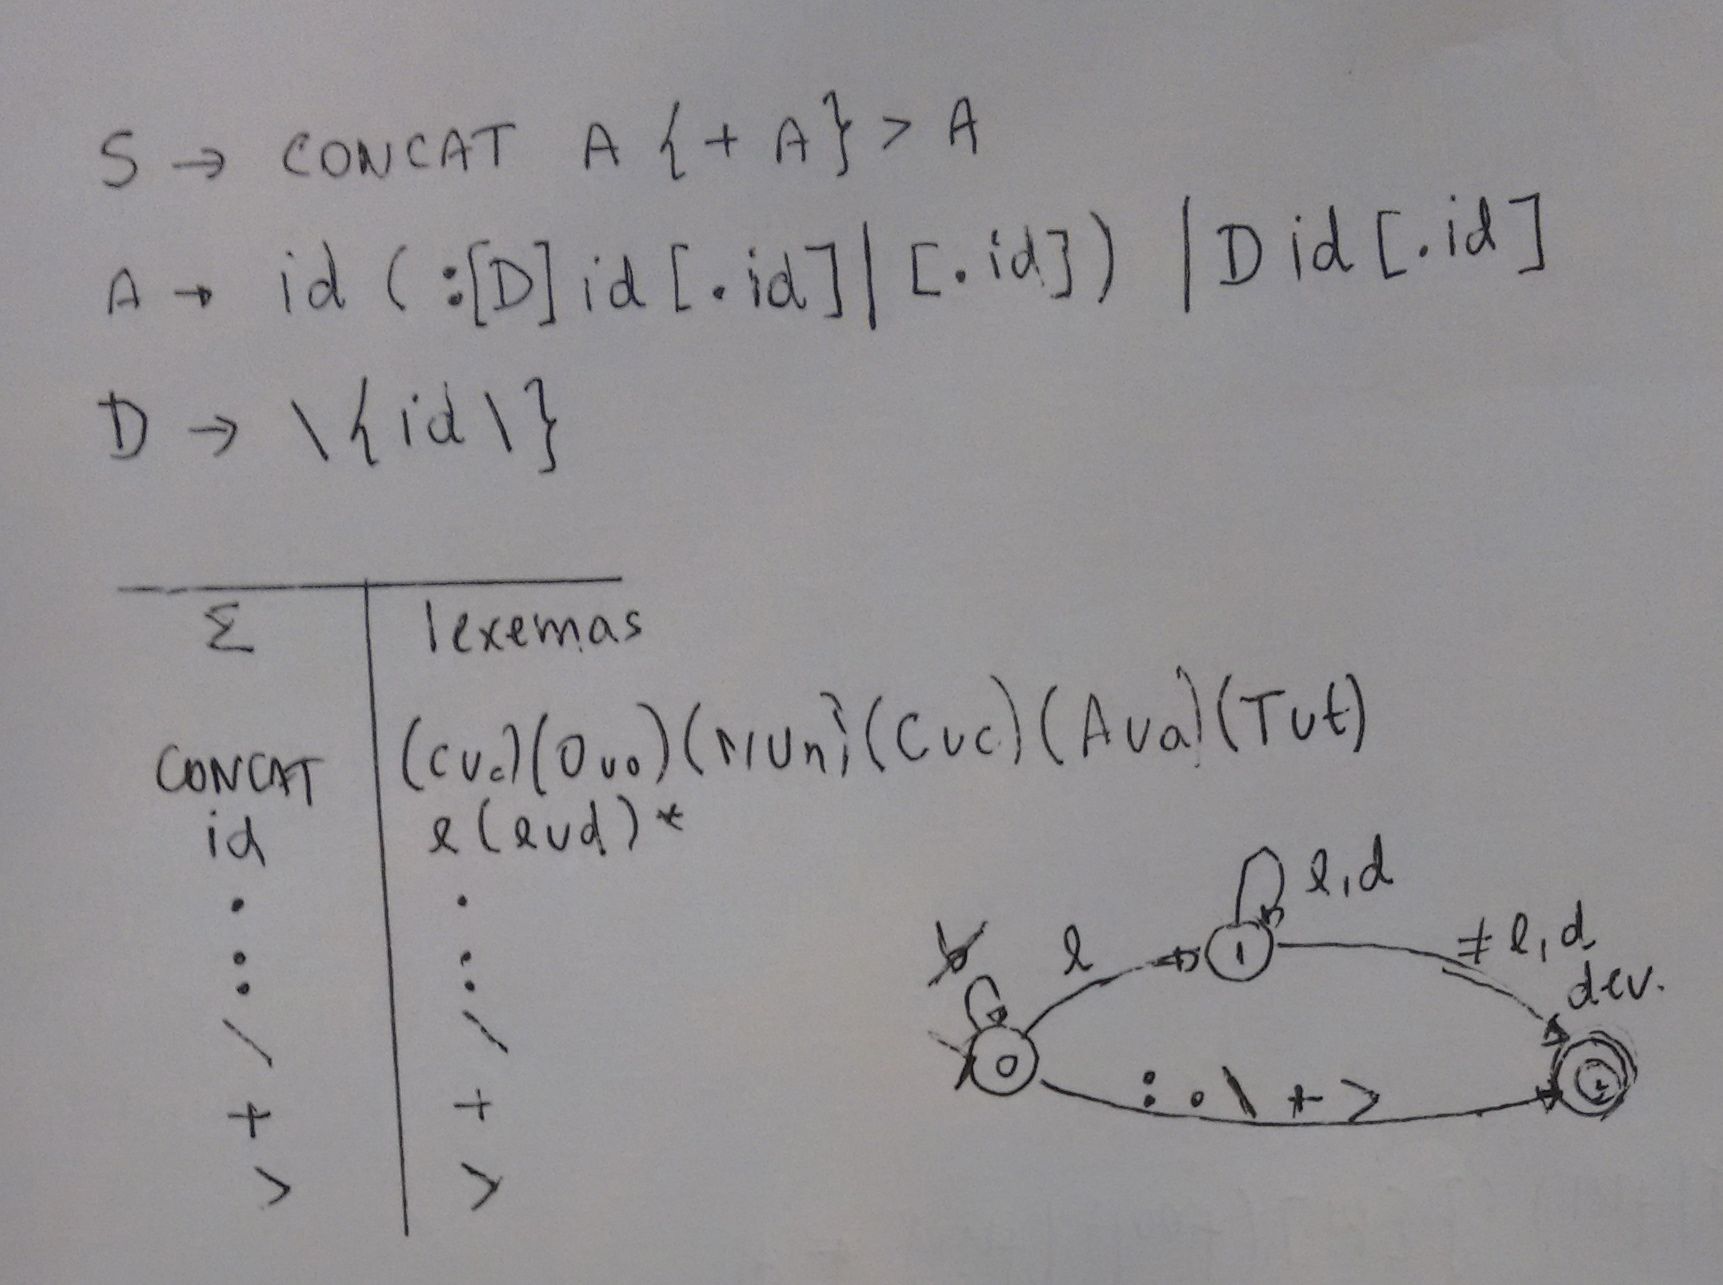 S → CONCAT A {+ A} > A
A → id ( :[D] id [. id] | [. id] ) | D id [. id]
D → \{id\}
Σ lexemas
CONCAT (C∪c)(O∪o)(N∪n)(C∪c)(A∪a)(T∪t)
id l(l∪d)*
. .
: :
\ \
+ +
> >
l,d
b l 1 ≠ l,d
dev.
0 : . \ + > 2